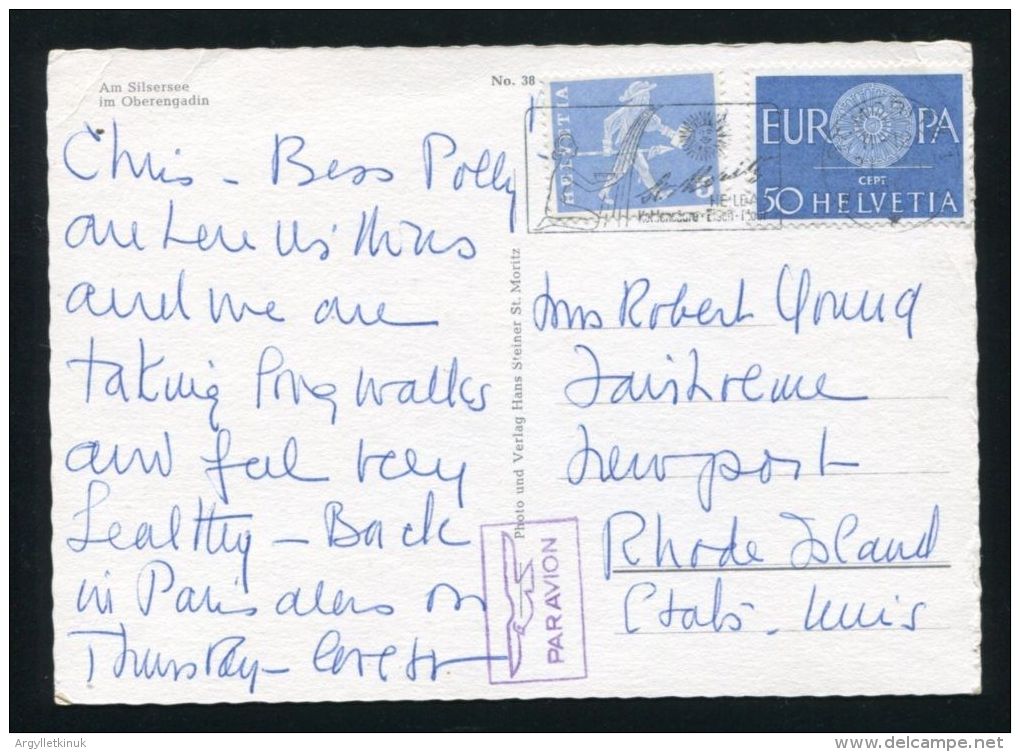 Am Silsersee
im Oberengadin
No. 38
HELVETIA
EUROPA
CEPT
50 HELVETIA
St. Moritz
HEILBAD
Kohlensäure-Eisen-Moor
Chris - Bess Polly
are here
and we are
taking long walks
and feel very
healthy - Back
in Paris on
Thursday - love
Photo und Verlag Hans Steiner St. Moritz
PAR AVION
Mrs Robert Young
Fairholme
Newport
Rhode Island
Etats-Unis
Argylletkinuk
delcampe.net